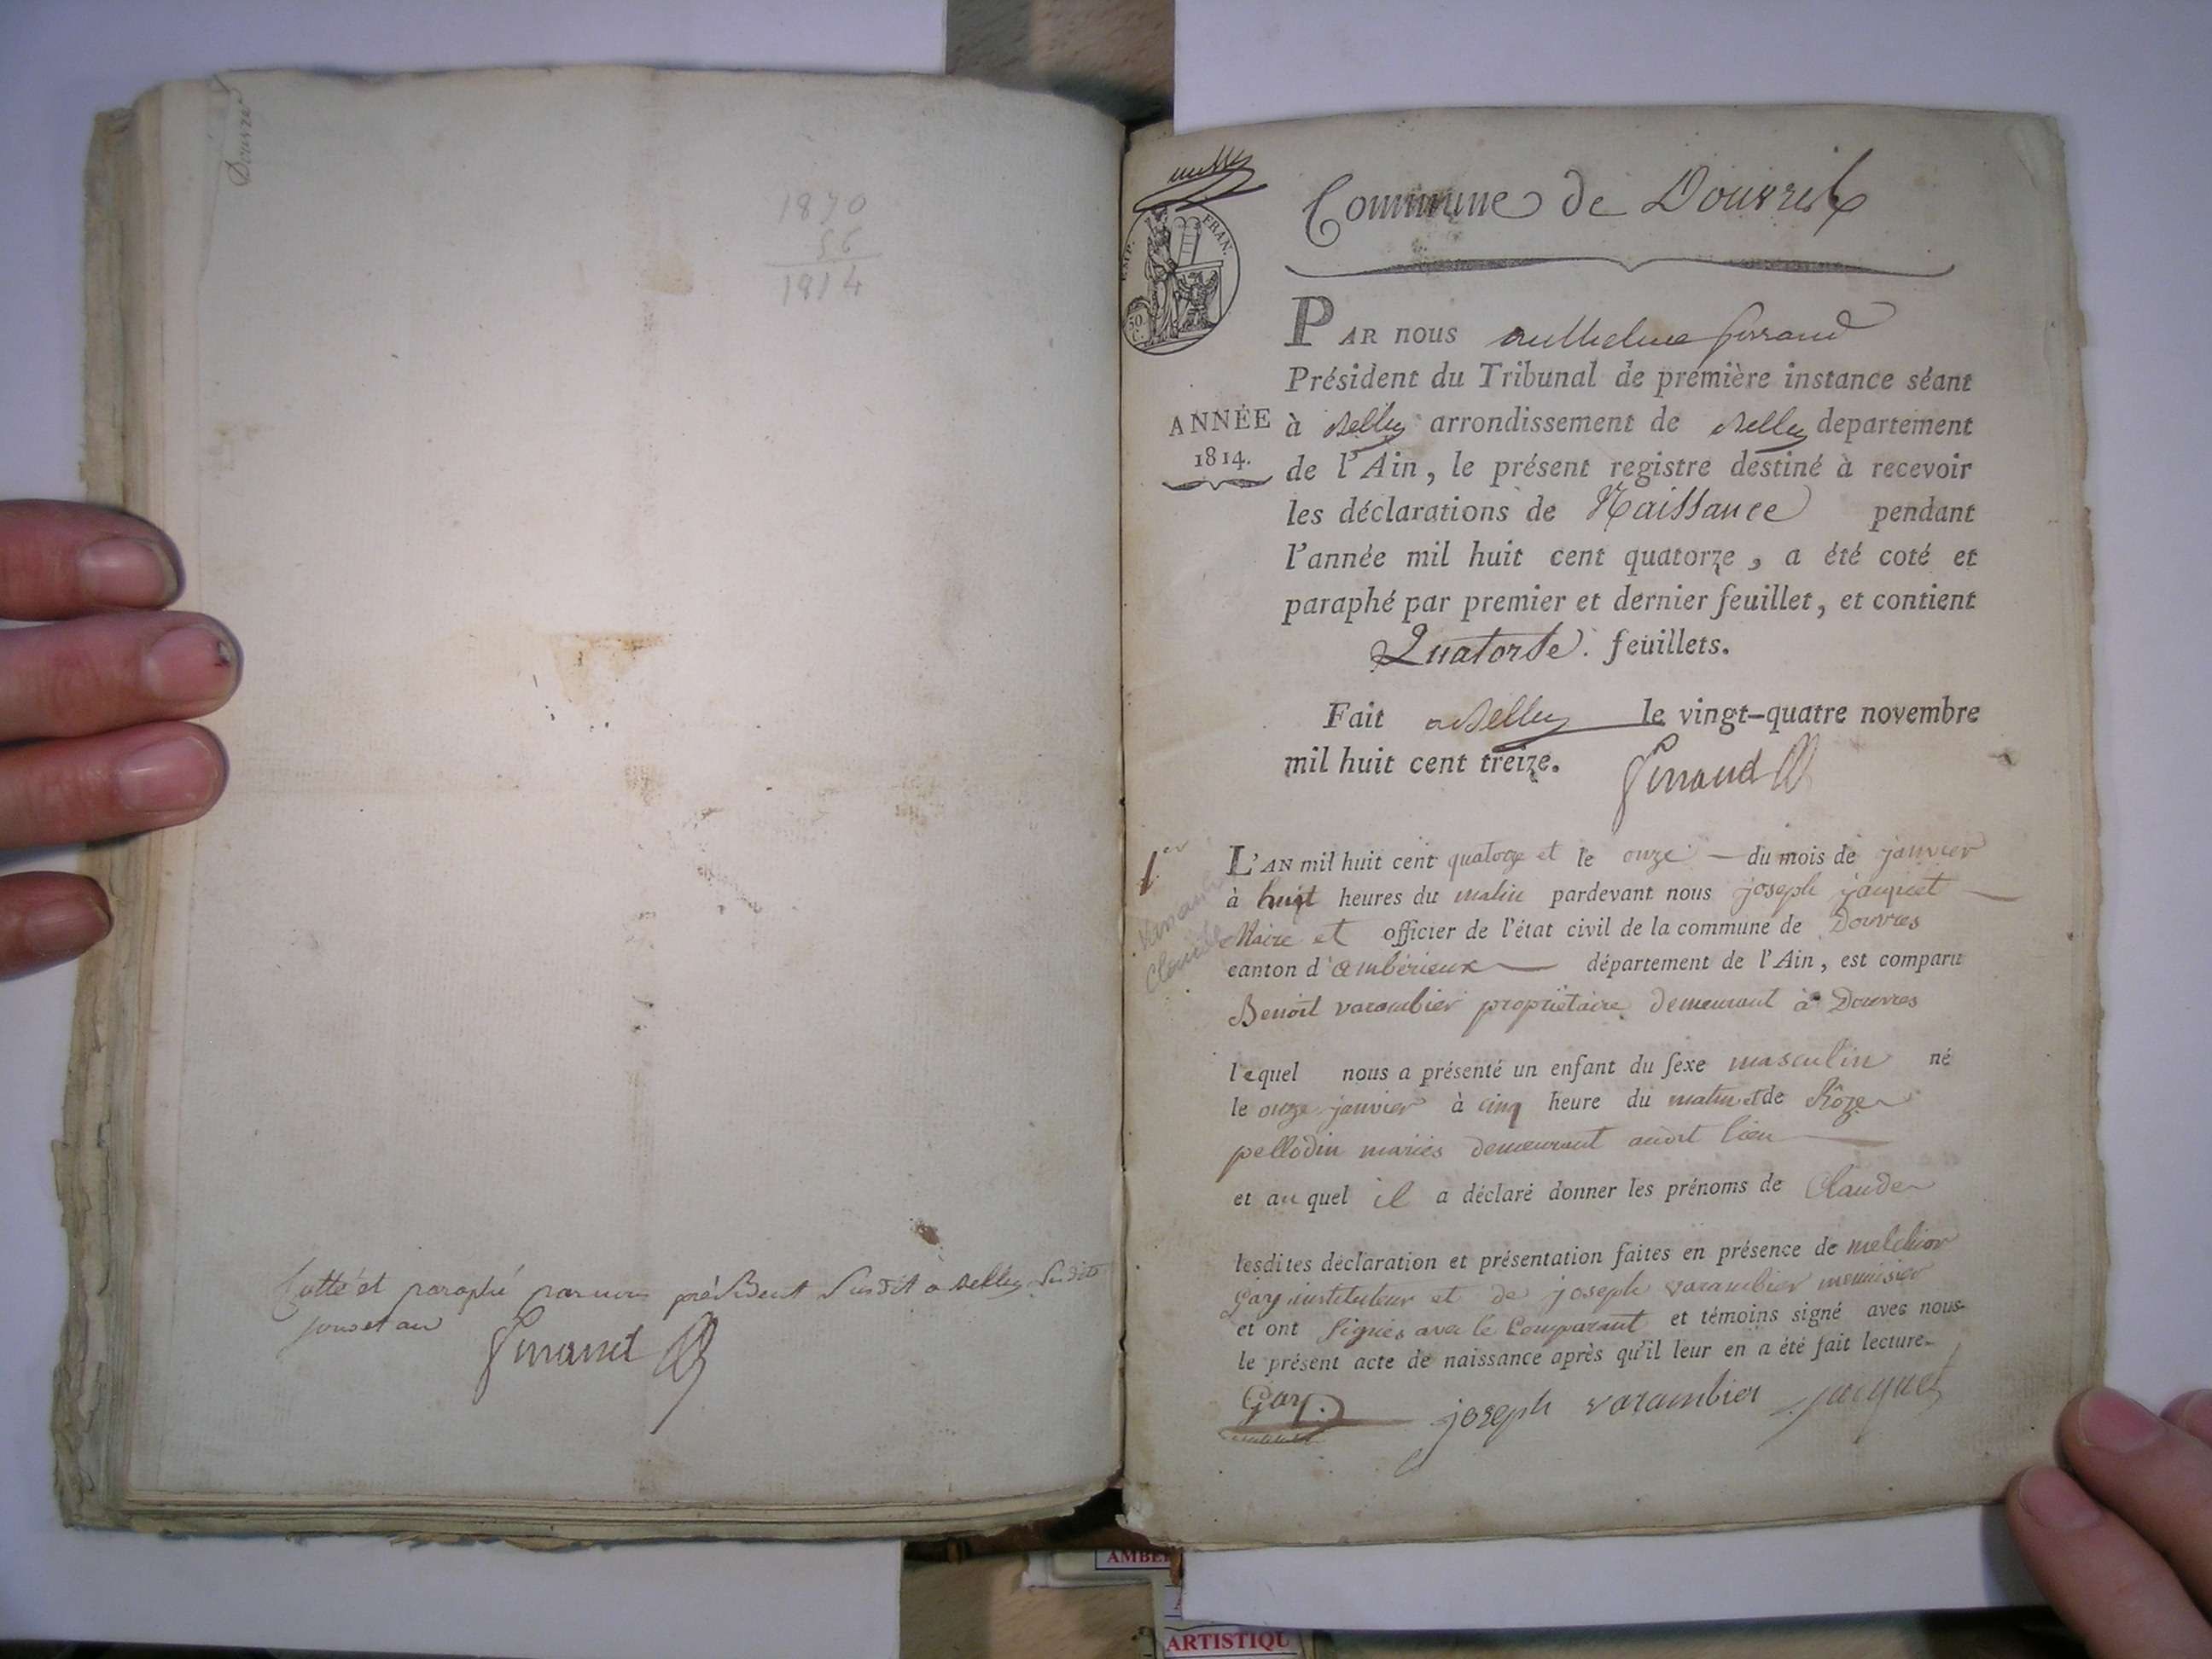 Douvre
1870
56
1814
Cotté et paraphé par nous président susdit a Belley susdits
jour et an
Ferrand
Commune de Douvres
EMP. FRAN.
50 C.
PAR nous Anthelme ferrand
Président du Tribunal de première instance séant
ANNÉE
1814.
à Belley arrondissement de Belley departement
de l'Ain, le présent registre destiné à recevoir
les déclarations de Naissance pendant
l'année mil huit cent quatorze, a été coté et
paraphé par premier et dernier feuillet, et contient
Quatorse feuillets.
Fait a Belley le vingt-quatre novembre
mil huit cent treize.
Ferrand
1er
Claude
L'AN mil huit cent quatorze et le onze du mois de janvier
à huit heures du matin pardevant nous joseph jacquet
Maire et officier de l'état civil de la commune de Douvres
canton d'ambérieux département de l'Ain, est comparu
Benoit varambier propriétaire demeurant à Douvres
lequel nous a présenté un enfant du sexe masculin né
le onze janvier à cinq heure du matin et de Rôze
pellodin mariés demeurant audit lieu
et au quel il a déclaré donner les prénoms de Claude
lesdites déclaration et présentation faites en présence de melchior
Gay instituteur et de joseph varambier menuisier
et ont signés avec le Comparant et témoins signé avec nous
le présent acte de naissance après qu'il leur en a été fait lecture.
Gay
joseph varambier jacquet
AMBE
ARTISTIQU